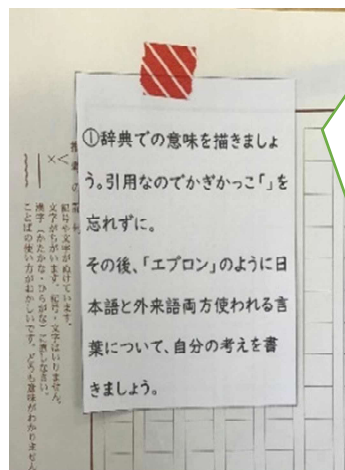 ①辞典での意味を描きましょ
う。引用なのでかぎかっこ「」を
忘れずに。
その後、「エプロン」のように日
本語と外来語両方使われる言
葉について、自分の考えを書
きましょう。
記号や文字がぬけています。
文字がちがいます。記号・文字はいりません。
漢字（かたかな・ひらがな）に直しなさい。
ことばの使い方がおかしいです。どうも意味がわかりません